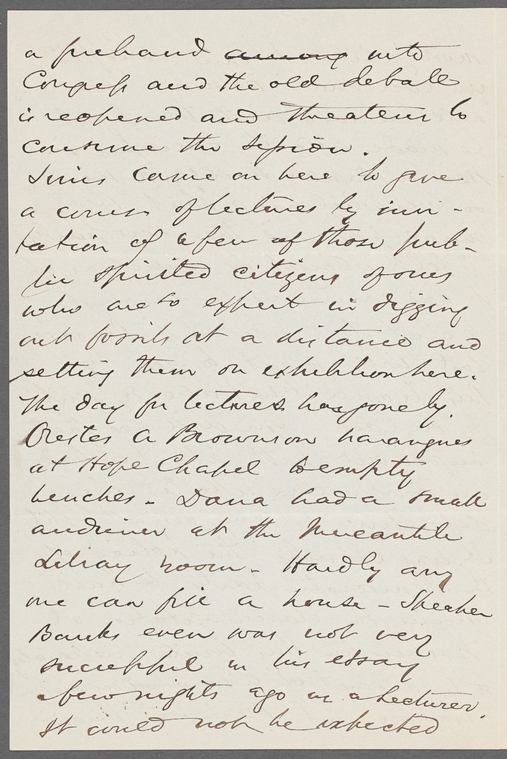 a firebrand among into
Congress and the old debate
is reopened and threatens to
consume the session.
Sims came on here to give
a course of lectures by invi-
tation of a few of those pub-
lic spirited citizens of ours
who are so expert in digging
out fossils at a distance and
setting them on exhibition here.
The day for lectures has gone by.
Orestes A Brownson harangues
at Hope Chapel to empty
benches - Dana had a small
audience at the Mercantile
Library room - Hardly any
one can fill a house - Speaker
Banks even was not very
successful in his essay
a few nights ago as a Lecturer.
It could not be expected